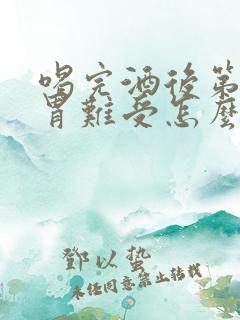 喝完酒後第
胃難受怎麼
鄧以蟄
未经同意禁止转载